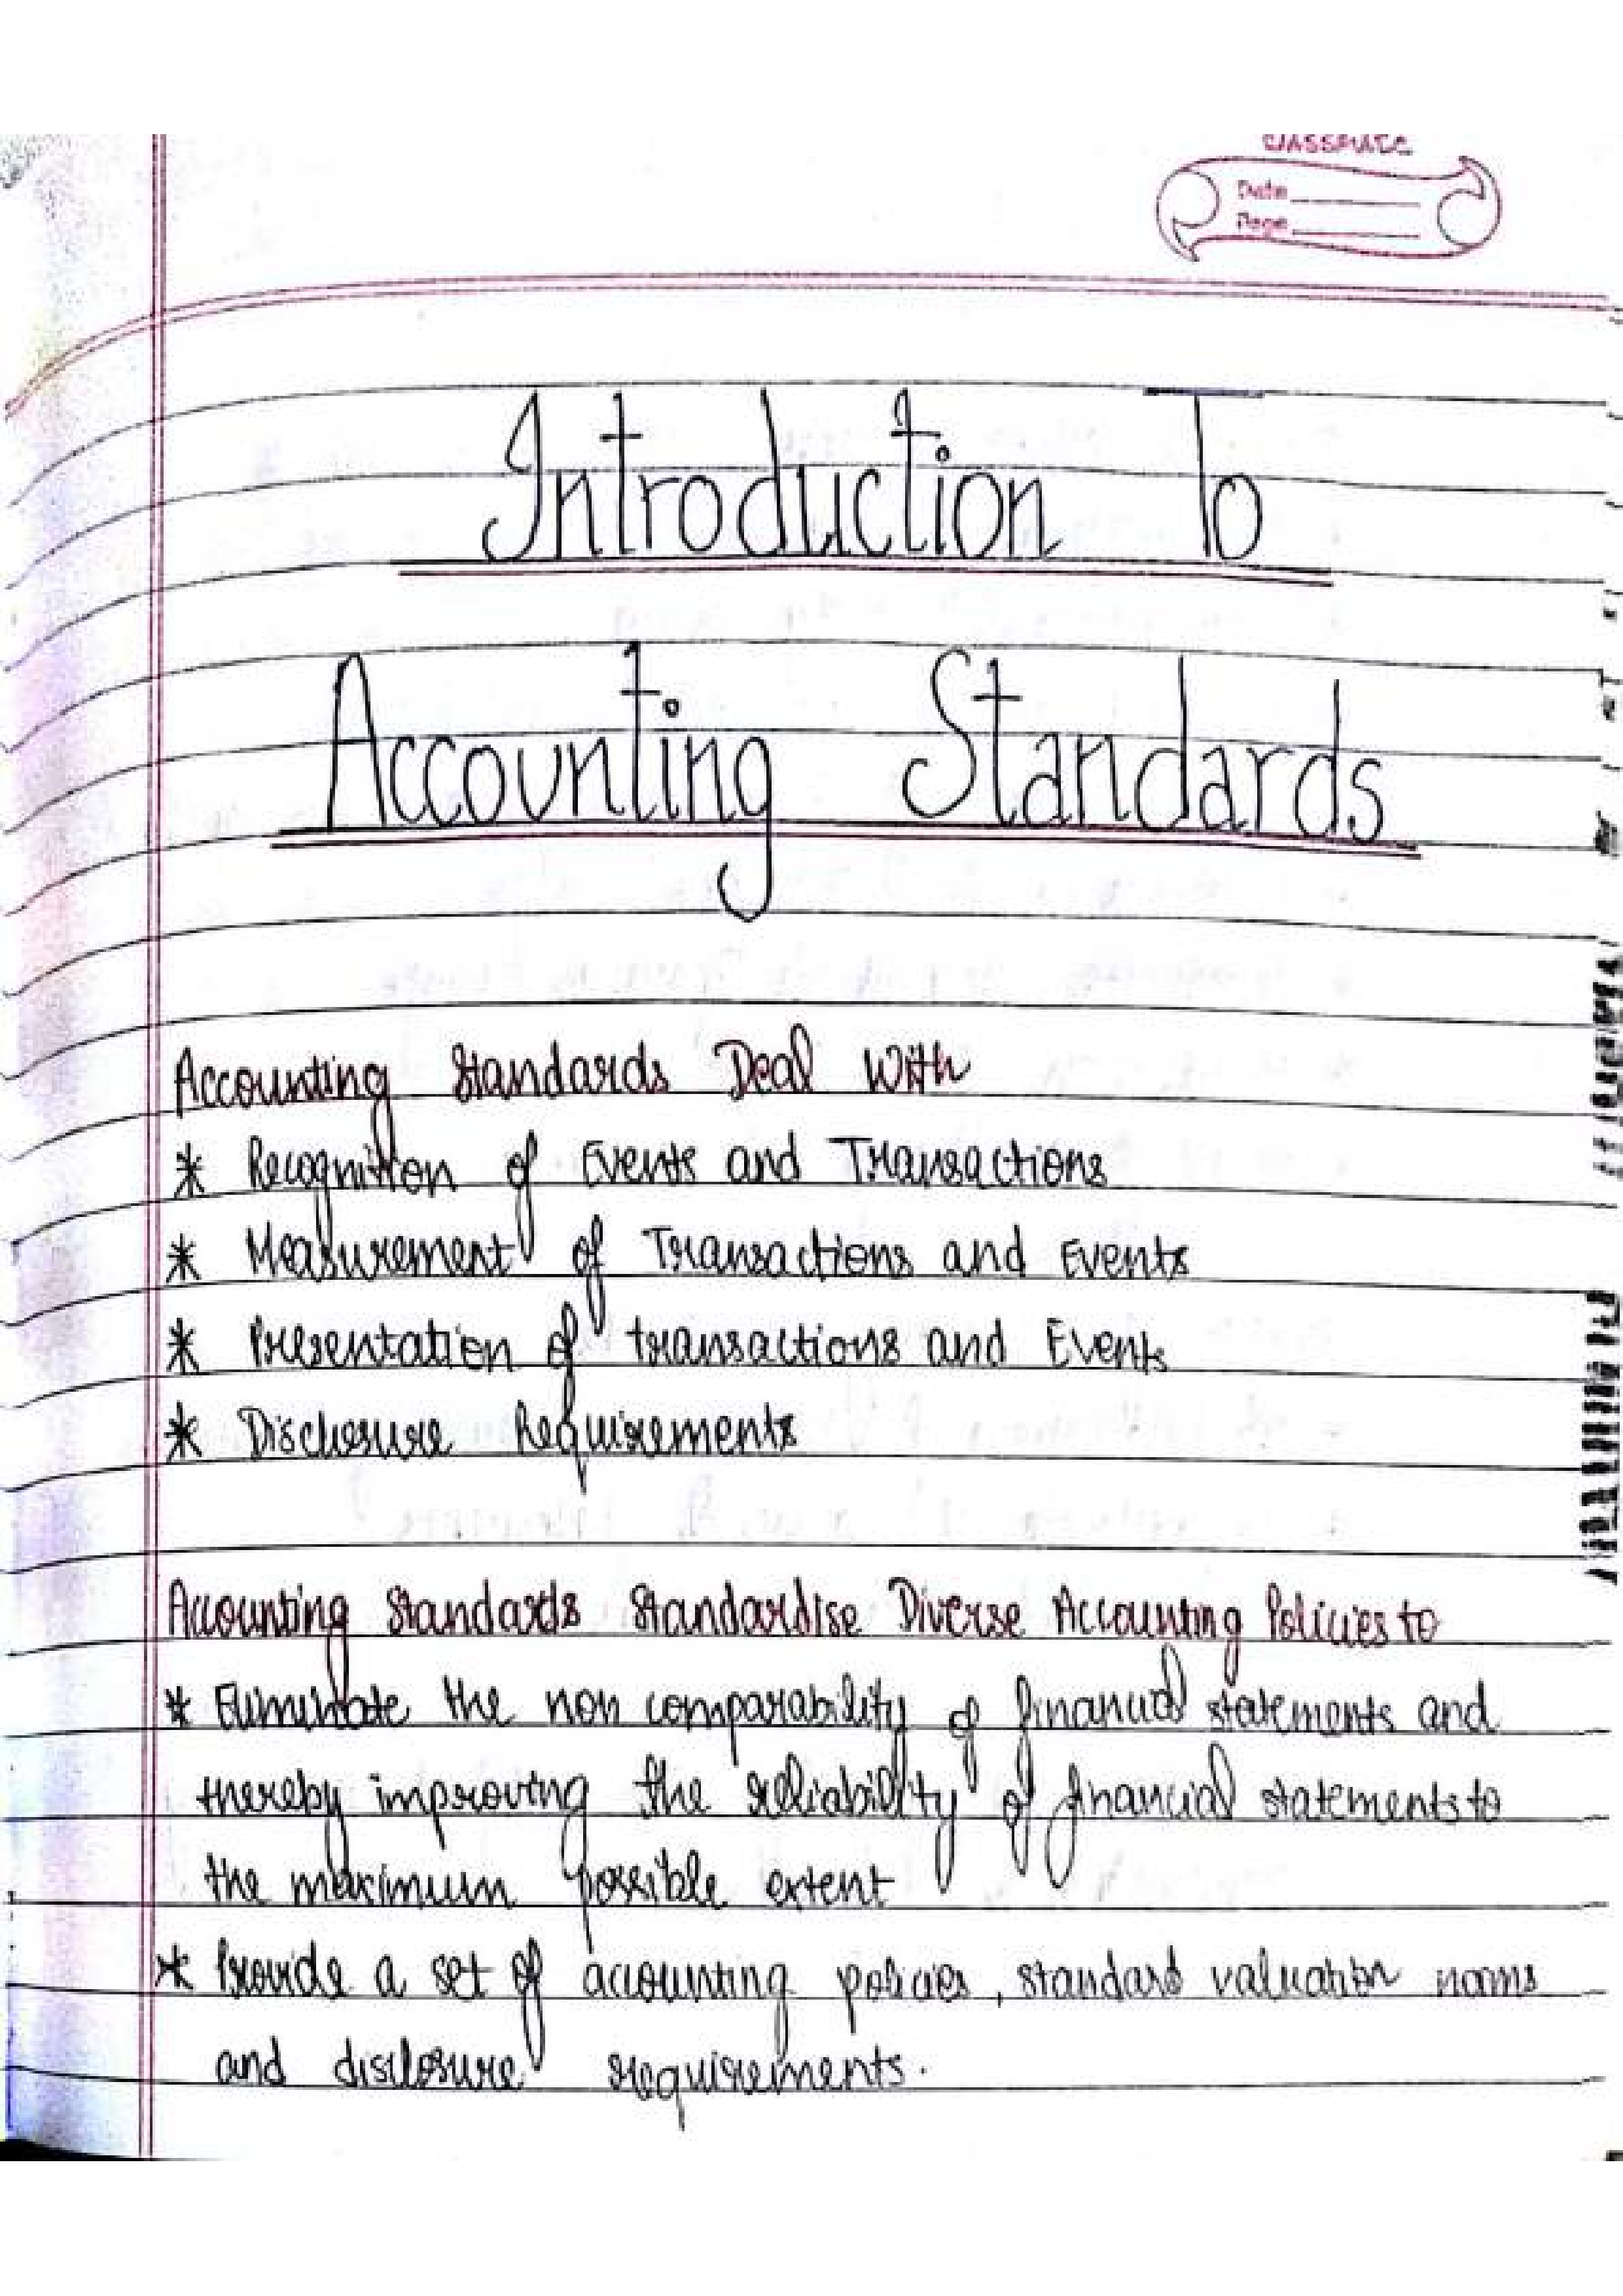 classmate
Date
Page
Introduction To
Accounting Standards
Accounting Standards Deal With
* Recognition of Events and Transactions
* Measurement of Transactions and Events
* Presentation of transactions and Events
* Disclosure Requirements
Accounting Standards Standardise Diverse Accounting Policies to
* Eliminate the non comparability of financial statements and
thereby improving the reliability of financial statements to
the maximum possible extent
* Provide a set of accounting policies, standard valuation norms
and disclosure requirements.